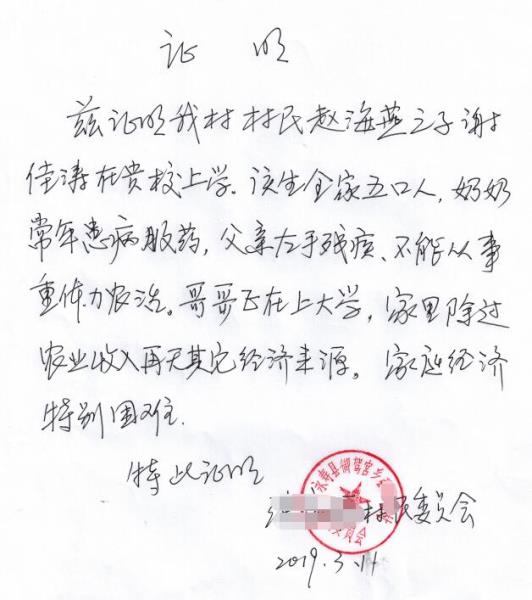 证 明
兹证明我村村民赵海燕之子谢
佳涛在贵校上学。该生全家五口人，奶奶
常年患病服药，父亲左手残疾、不能从事
重体力农活。哥哥正在上大学，家里除过
农业收入再无其它经济来源。家庭经济
特别困难.
特此证明
村民委员会
永寿县御驾宫乡
员会
2019.3.11